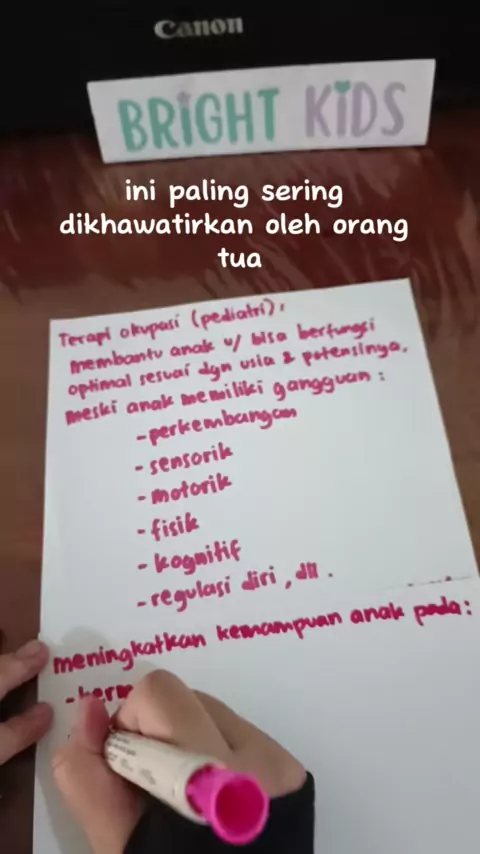 Canon
BRIGHT KiDS
ini paling sering
dikhawatirkan oleh orang
tua
Terapi okupasi (pediatri),
membantu anak u/ bisa berfungsi
optimal sesuai dgn usia & potensinya.
meski anak memiliki gangguan :
-perkembangan
- sensorik
- motorik
- fisik
- kognitif
- regulasi diri , dll .
meningkatkan kemampuan anak pada :